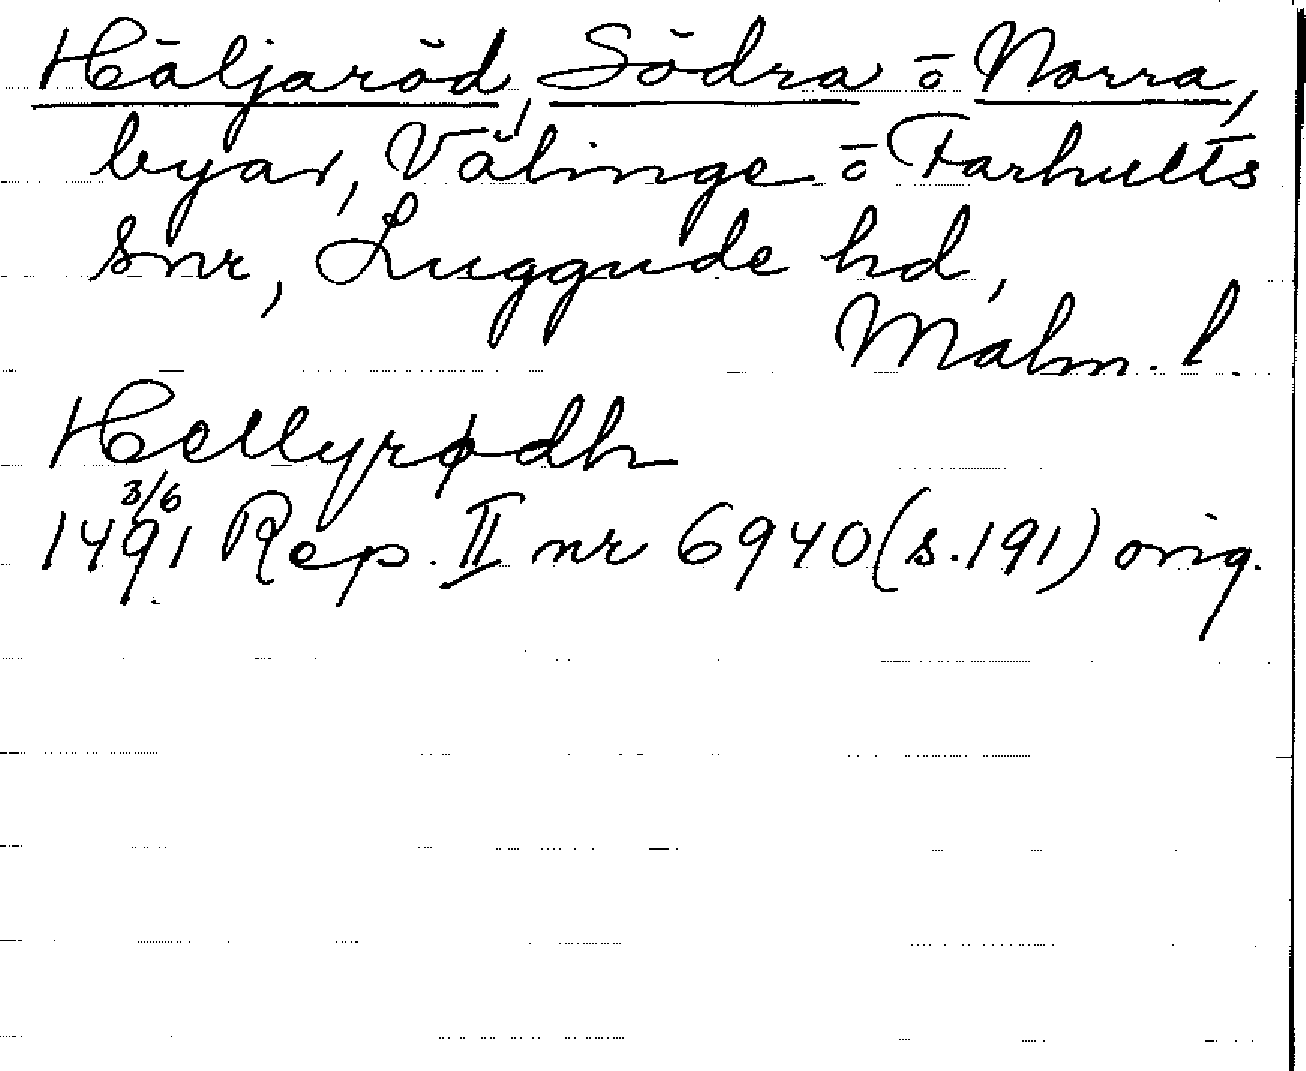 Häljaröd, Södra o Norra,
byar, Välinge o Farhults
snr, Luggude hd,
Malm. l.
Hellyrødh
3/6
1491 Rep. II nr 6940 (s. 191) orig.